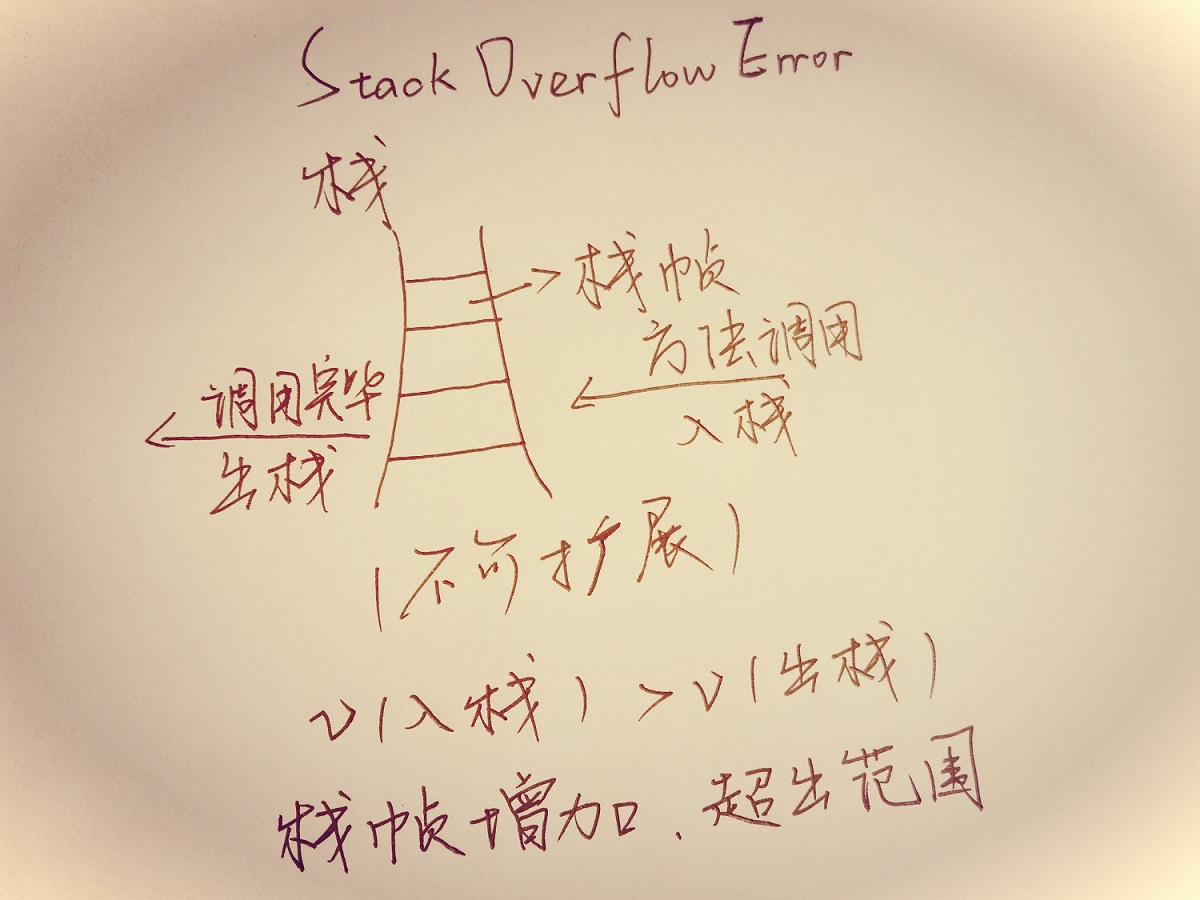 Stack Overflow Error
栈
栈帧
方法调用
入栈
调用完毕
出栈
(不可扩展)
v(入栈) > v(出栈)
栈帧增加.超出范围